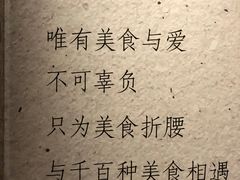 唯有美食与爱
不可辜负
只为美食折腰
与千百种美食相遇